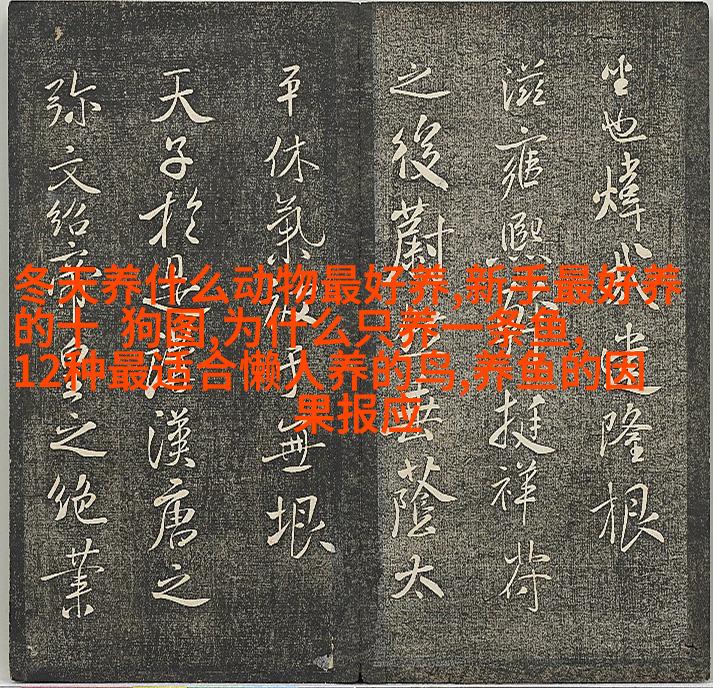 冬天养什么动物最好养,新手最好养
的十 狗图,为什么只养一条鱼,
12种最适合懒人养的鸟,养鱼的因
果报应
也煒隆根
滋雍熙挺祥符
之後蔚蔭太
平休氣無垠
天子於漢唐之
弥文紹之絶業